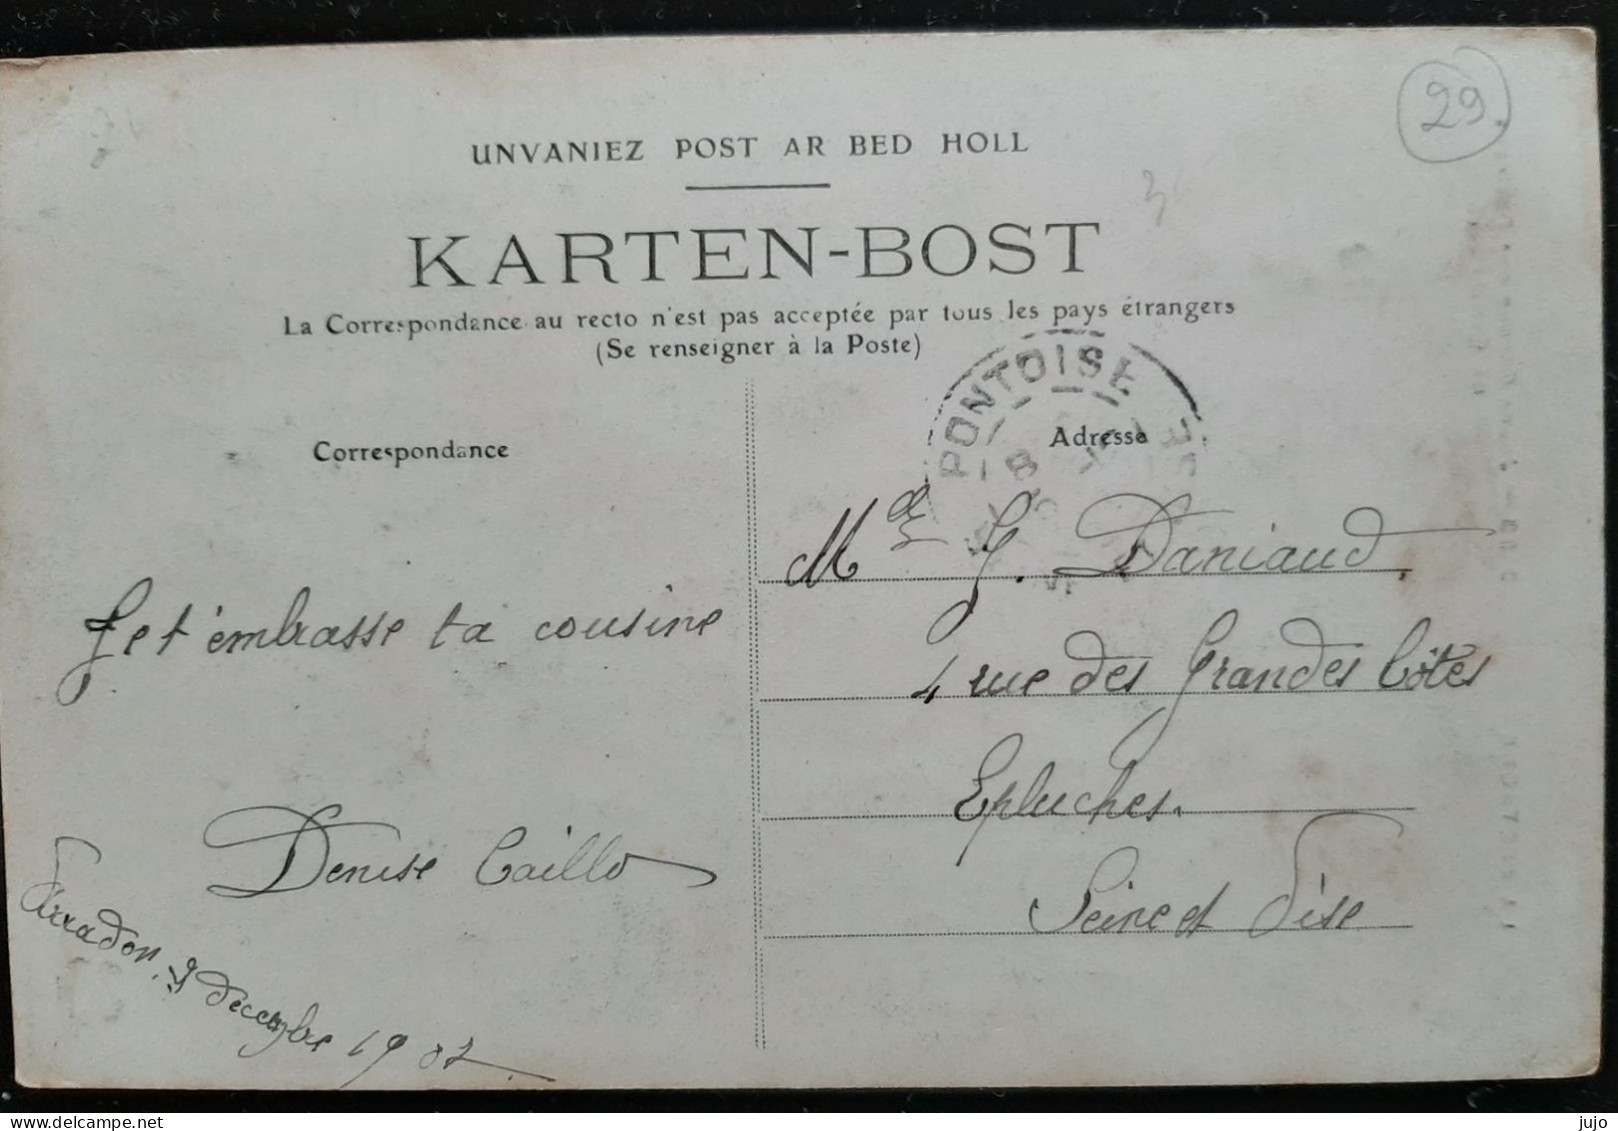 29
UNVANIEZ POST AR BED HOLL
KARTEN-BOST
La Correspondance au recto n'est pas acceptée par tous les pays étrangers
(Se renseigner à la Poste)
PONTOISE
Correspondance
Adresse
Je t'embrasse ta cousine
Denise Caillo
9 décembre 1907
G. Daniaud
4 rue des Grandes Côtes
Epluches.
Seine et Oise
jujo